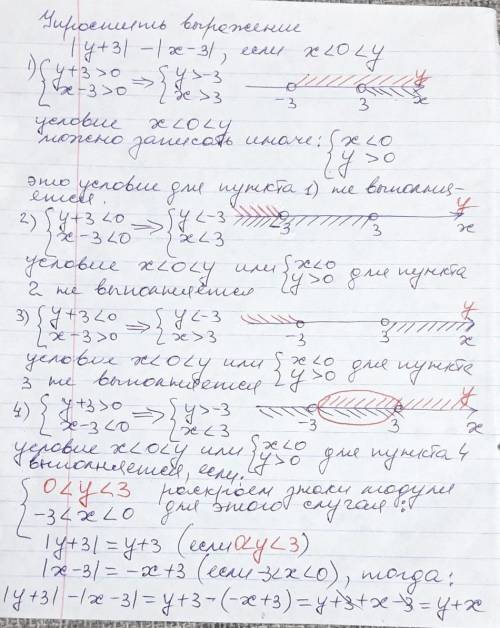 Упростить выражение
|y+3| - |x-3|, если x<0<y
1) {y+3>0 x-3>0 ⇒ {y>-3 x>3 -3 3 y x
условие x<0<y
можно записать иначе: {x<0 y>0
это условие для пункта 1) не выполня-
ется.
2) {y+3<0 x-3<0 ⇒ {y<-3 x<3 -3 3 y x
условие x<0<y или {x<0 y>0 для пункта
2 не выполняется
3) {y+3<0 x-3>0 ⇒ {y<-3 x>3 -3 3 y x
условие x<0<y или {x<0 y>0 для пункта
3 не выполняется
4) {y+3>0 x-3<0 ⇒ {y>-3 x<3 -3 3 y x
условие x<0<y или {x<0 y>0 для пункта 4
выполняется, если:
{0<y<3 раскроем знаки модуля
-3<x<0 для этого случая:
|y+3| = y+3 (если 0<y<3)
|x-3| = -x+3 (если -3<x<0), тогда:
|y+3| - |x-3| = y+3-(-x+3) = y+3+x-3 = y+x